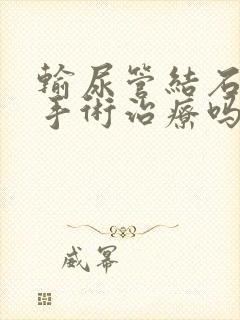 輸尿管結石
手術治療嗎
威寡